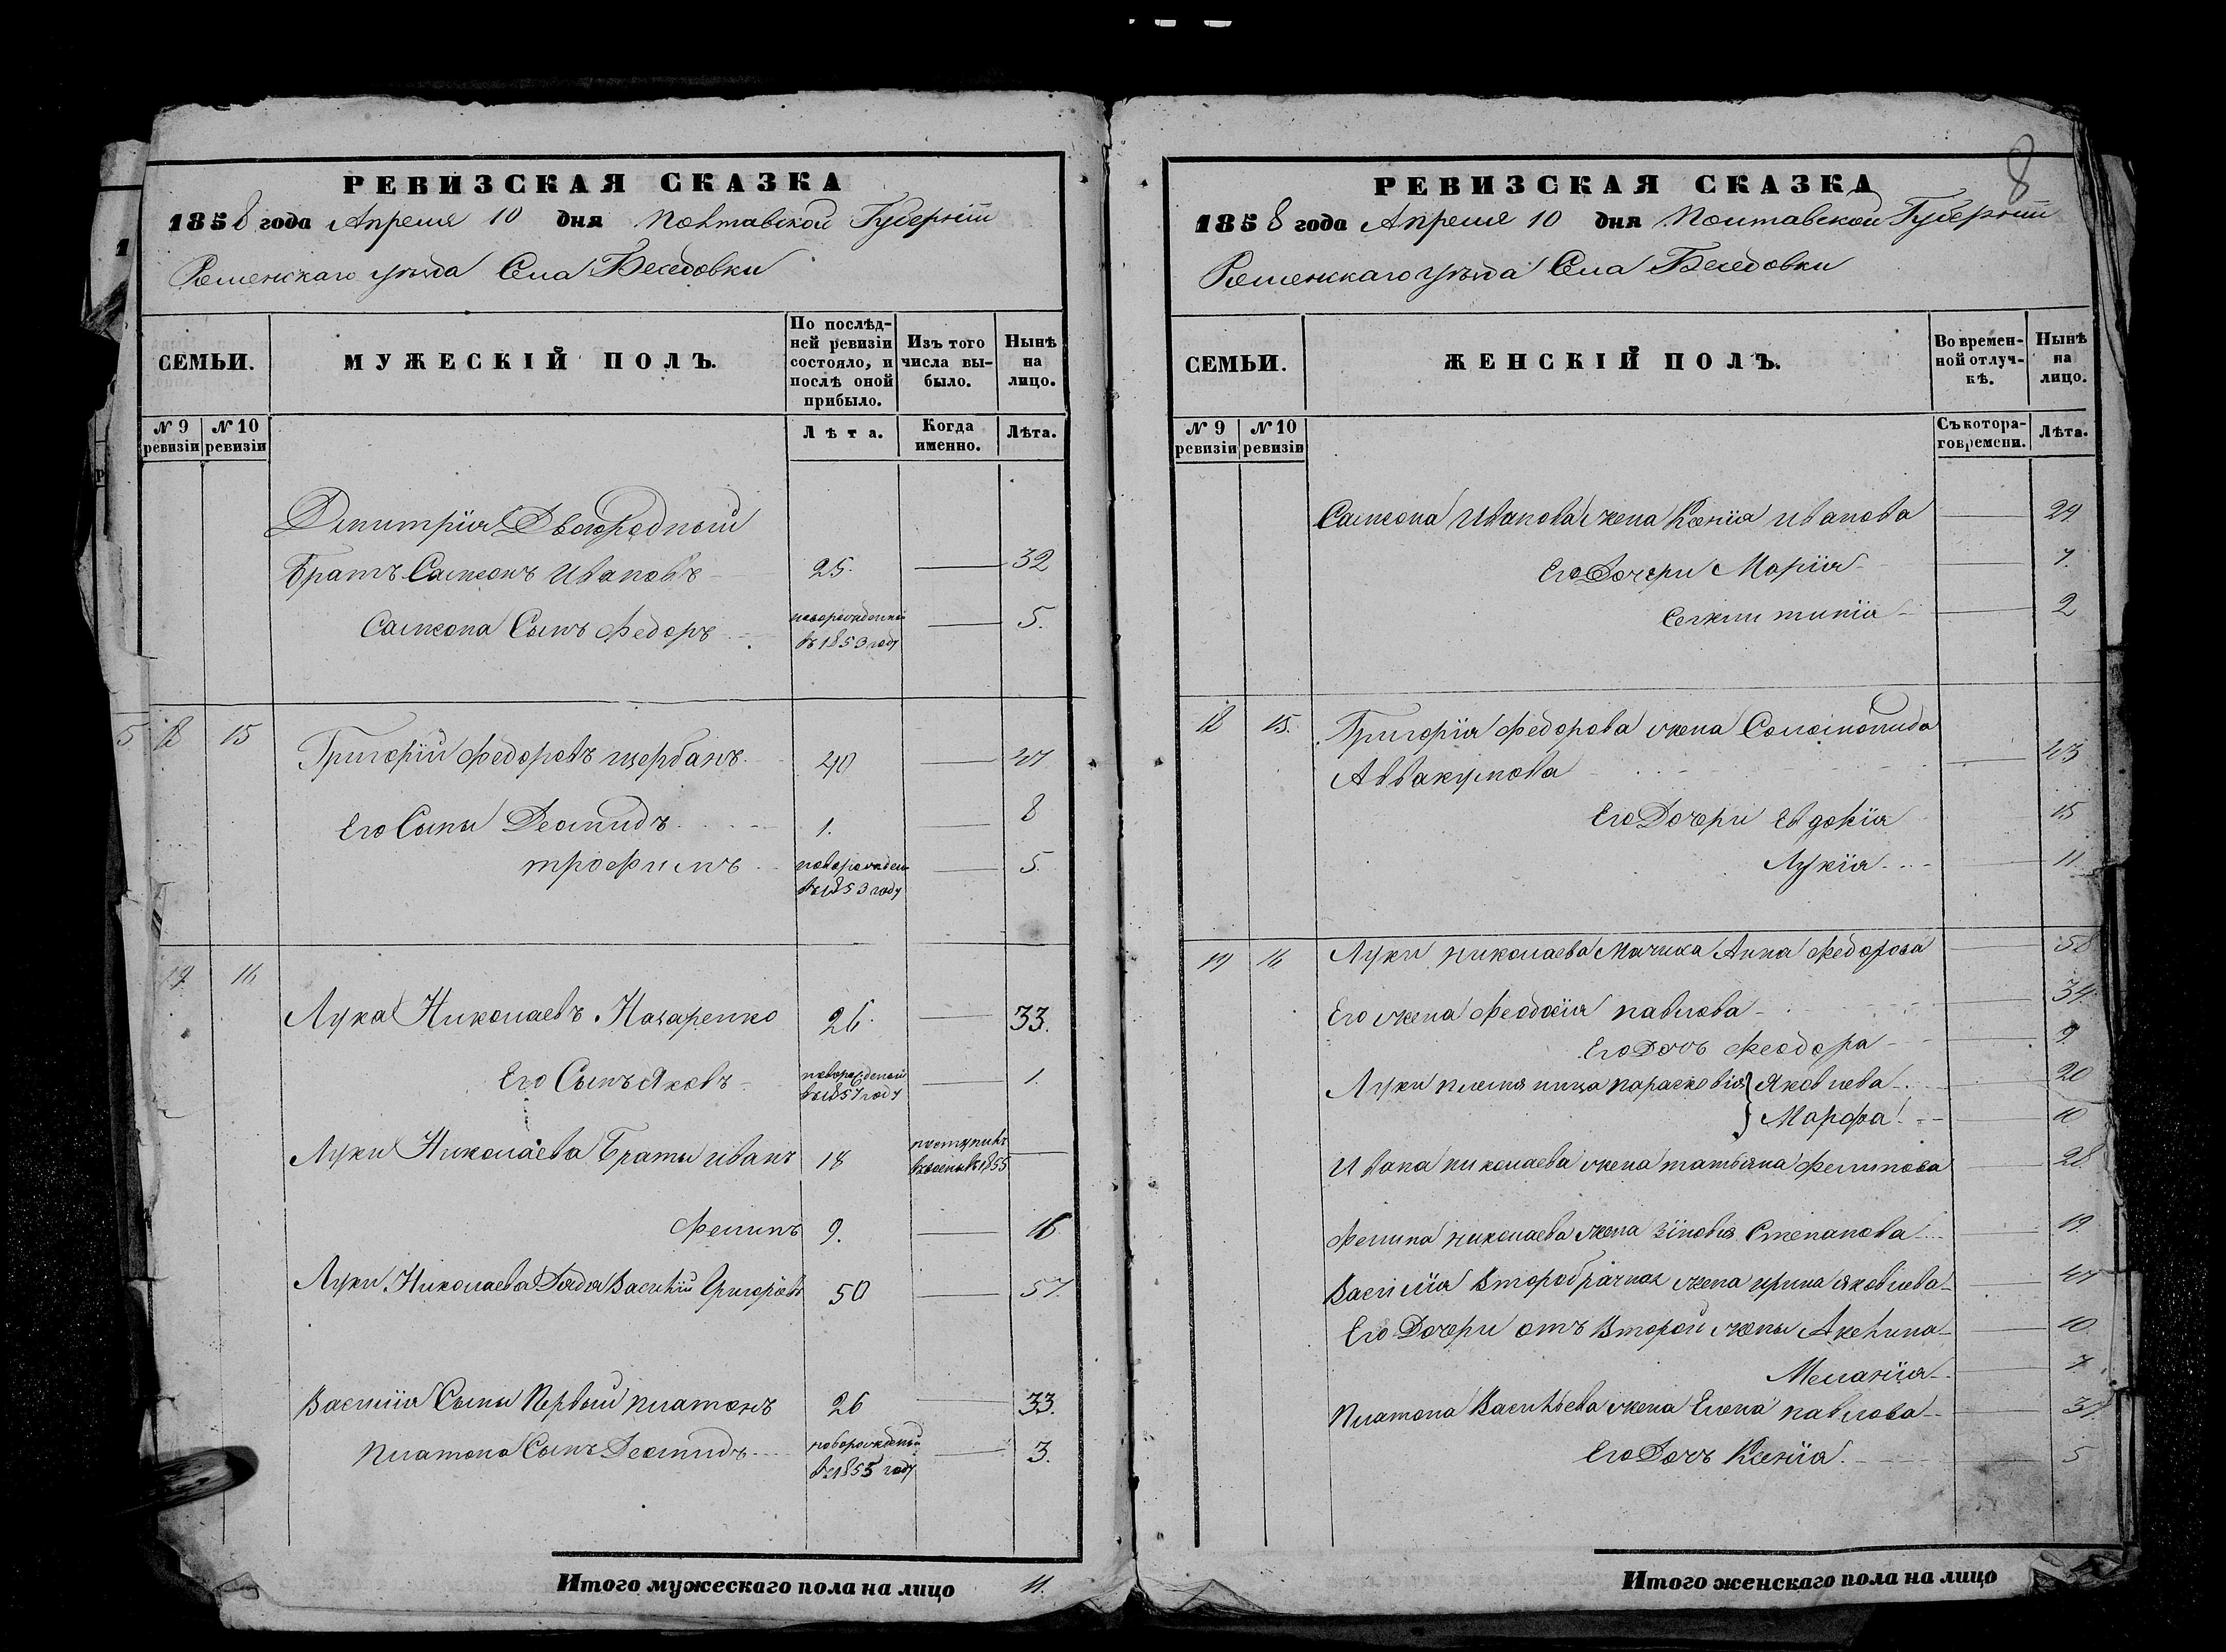 8
РЕВИЗСКАЯ СКАЗКА
1858 года Апреля 10 дня Полтавской Губерніи
Роменскаго уѣзда Села Беседовки
СЕМЬИ.
МУЖЕСКІЙ ПОЛЪ.
По послѣд-
ней ревизіи
состояло, и
послѣ оной
прибыло.
Изъ того
числа вы-
было.
Нынѣ
на
лицо.
№ 9
ревизіи
№ 10
ревизіи
Лѣта.
Когда
именно.
Лѣта.
Дмитрія Двоюродный
Братъ Самсонъ Ивановъ 25. 32
Самсона Сынъ Федоръ новорожденный 5.
въ 1853 году
15
Григорій Федоровъ Щербакъ 40 47
Его Сыны Леонидъ 1. 8
трофимъ новорожден 5.
въ 1853 году
16
Лука Николаевъ Назаренко 26. 33.
Его Сынъ Яковъ новорожденый 1.
въ 1857 году
Луки Николаева Браты иванъ 18 поступилъ
1855
Филипъ 9. 16
Луки Николаева Дядя Василій Григорьевъ 50 57
Василія Сыны Первый платонъ 26 33.
Платона Сынъ Леонидъ новорожденый 3.
въ 1855 году
Итого мужескаго пола на лицо 11.
РЕВИЗСКАЯ СКАЗКА
1858 года Апреля 10 дня Полтавской Губерніи
Роменскаго уѣзда Села Беседовки
СЕМЬИ.
ЖЕНСКІЙ ПОЛЪ.
Во времен-
ной отлуч-
кѣ.
Нынѣ
на
лицо.
№ 9
ревизіи
№ 10
ревизіи
Съ котора-
го времени.
Лѣта.
Самсона Иванова жена Ксенія иванова 29
Его Дочери Марія 7.
2
18 15. Григорія Федорова жена Соломонида
Аввакумова 43
Его Дочери Евдокія 15
Лукія 11
19 16 Луки николаева Мачиха Анна Федорова 58
Его жена Феодосія павлова 34.
Его Дочь Феодора 9.
Луки племяница парасковія } Яковлева 20
Марфа 10
Ивана николаева жена татьяна Филипова 28
Филипа николаева жена Зіновія Степанова 19.
Василія Второбрачная жена ирина яковлева 47
Его Дочери отъ Второй жены Акелина 10.
Меланія 7
Платона Васильева жена Елена павлова 31.
Его Дочь Ксенія. 5
Итого женскаго пола на лицо